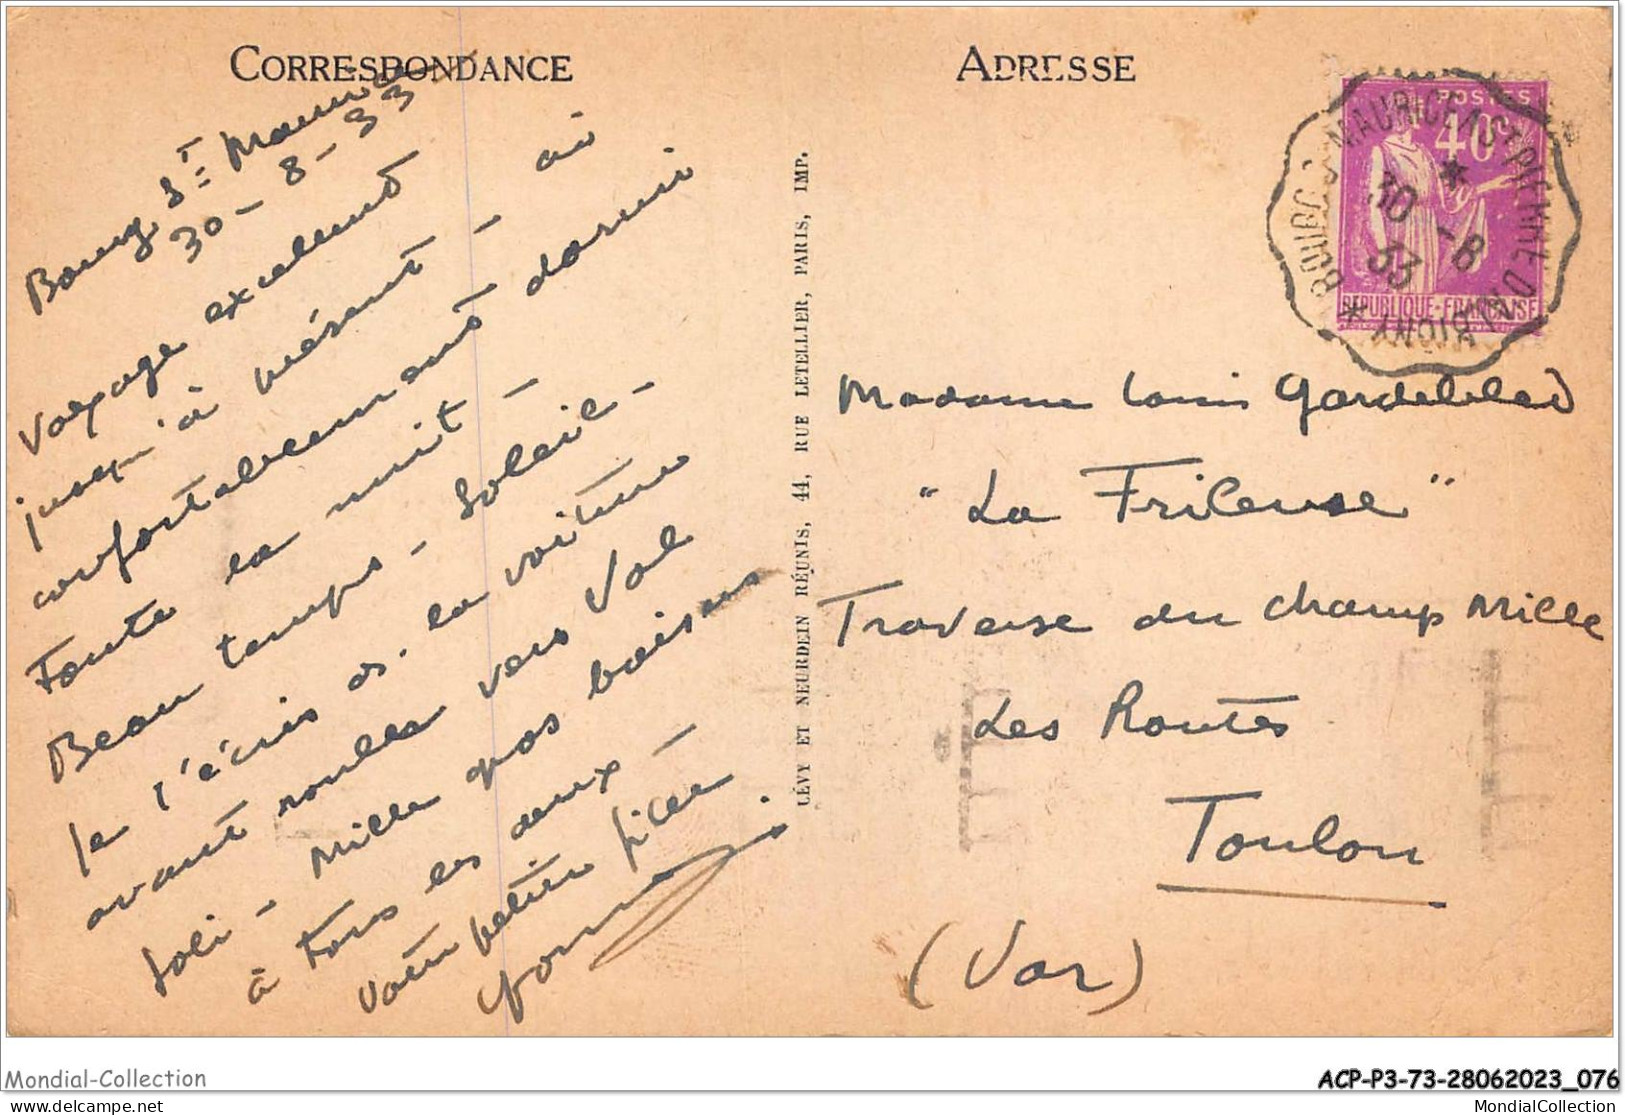 CORRESPONDANCE
Bourg St Maurice
30-8-33
Voyage excellent
jusqu'à présent - ai
confortablement dormi
toute la nuit -
Beau temps - Soleil -
Je t'écris ds. la voiture
avant rouler vers Val
Joli - Mille gros baisers
à tous les deux -
Votre petite fille
LÉVY ET NEURDEIN RÉUNIS, 44, RUE LETELLIER, PARIS, IMP.
ADRESSE
POSTES
40c
RÉPUBLIQUE-FRANÇAISE
BOURG-St-MAURICE A St PIERRE D'ALBIGNY
30 -8
33
Madame Louis Gardebled
"La Frileuse"
Traverse du Champ Mille
Les Routes
Toulon
(Var)
Mondial-Collection
ACP-P3-73-28062023_076
delcampe.net
MondialCollection